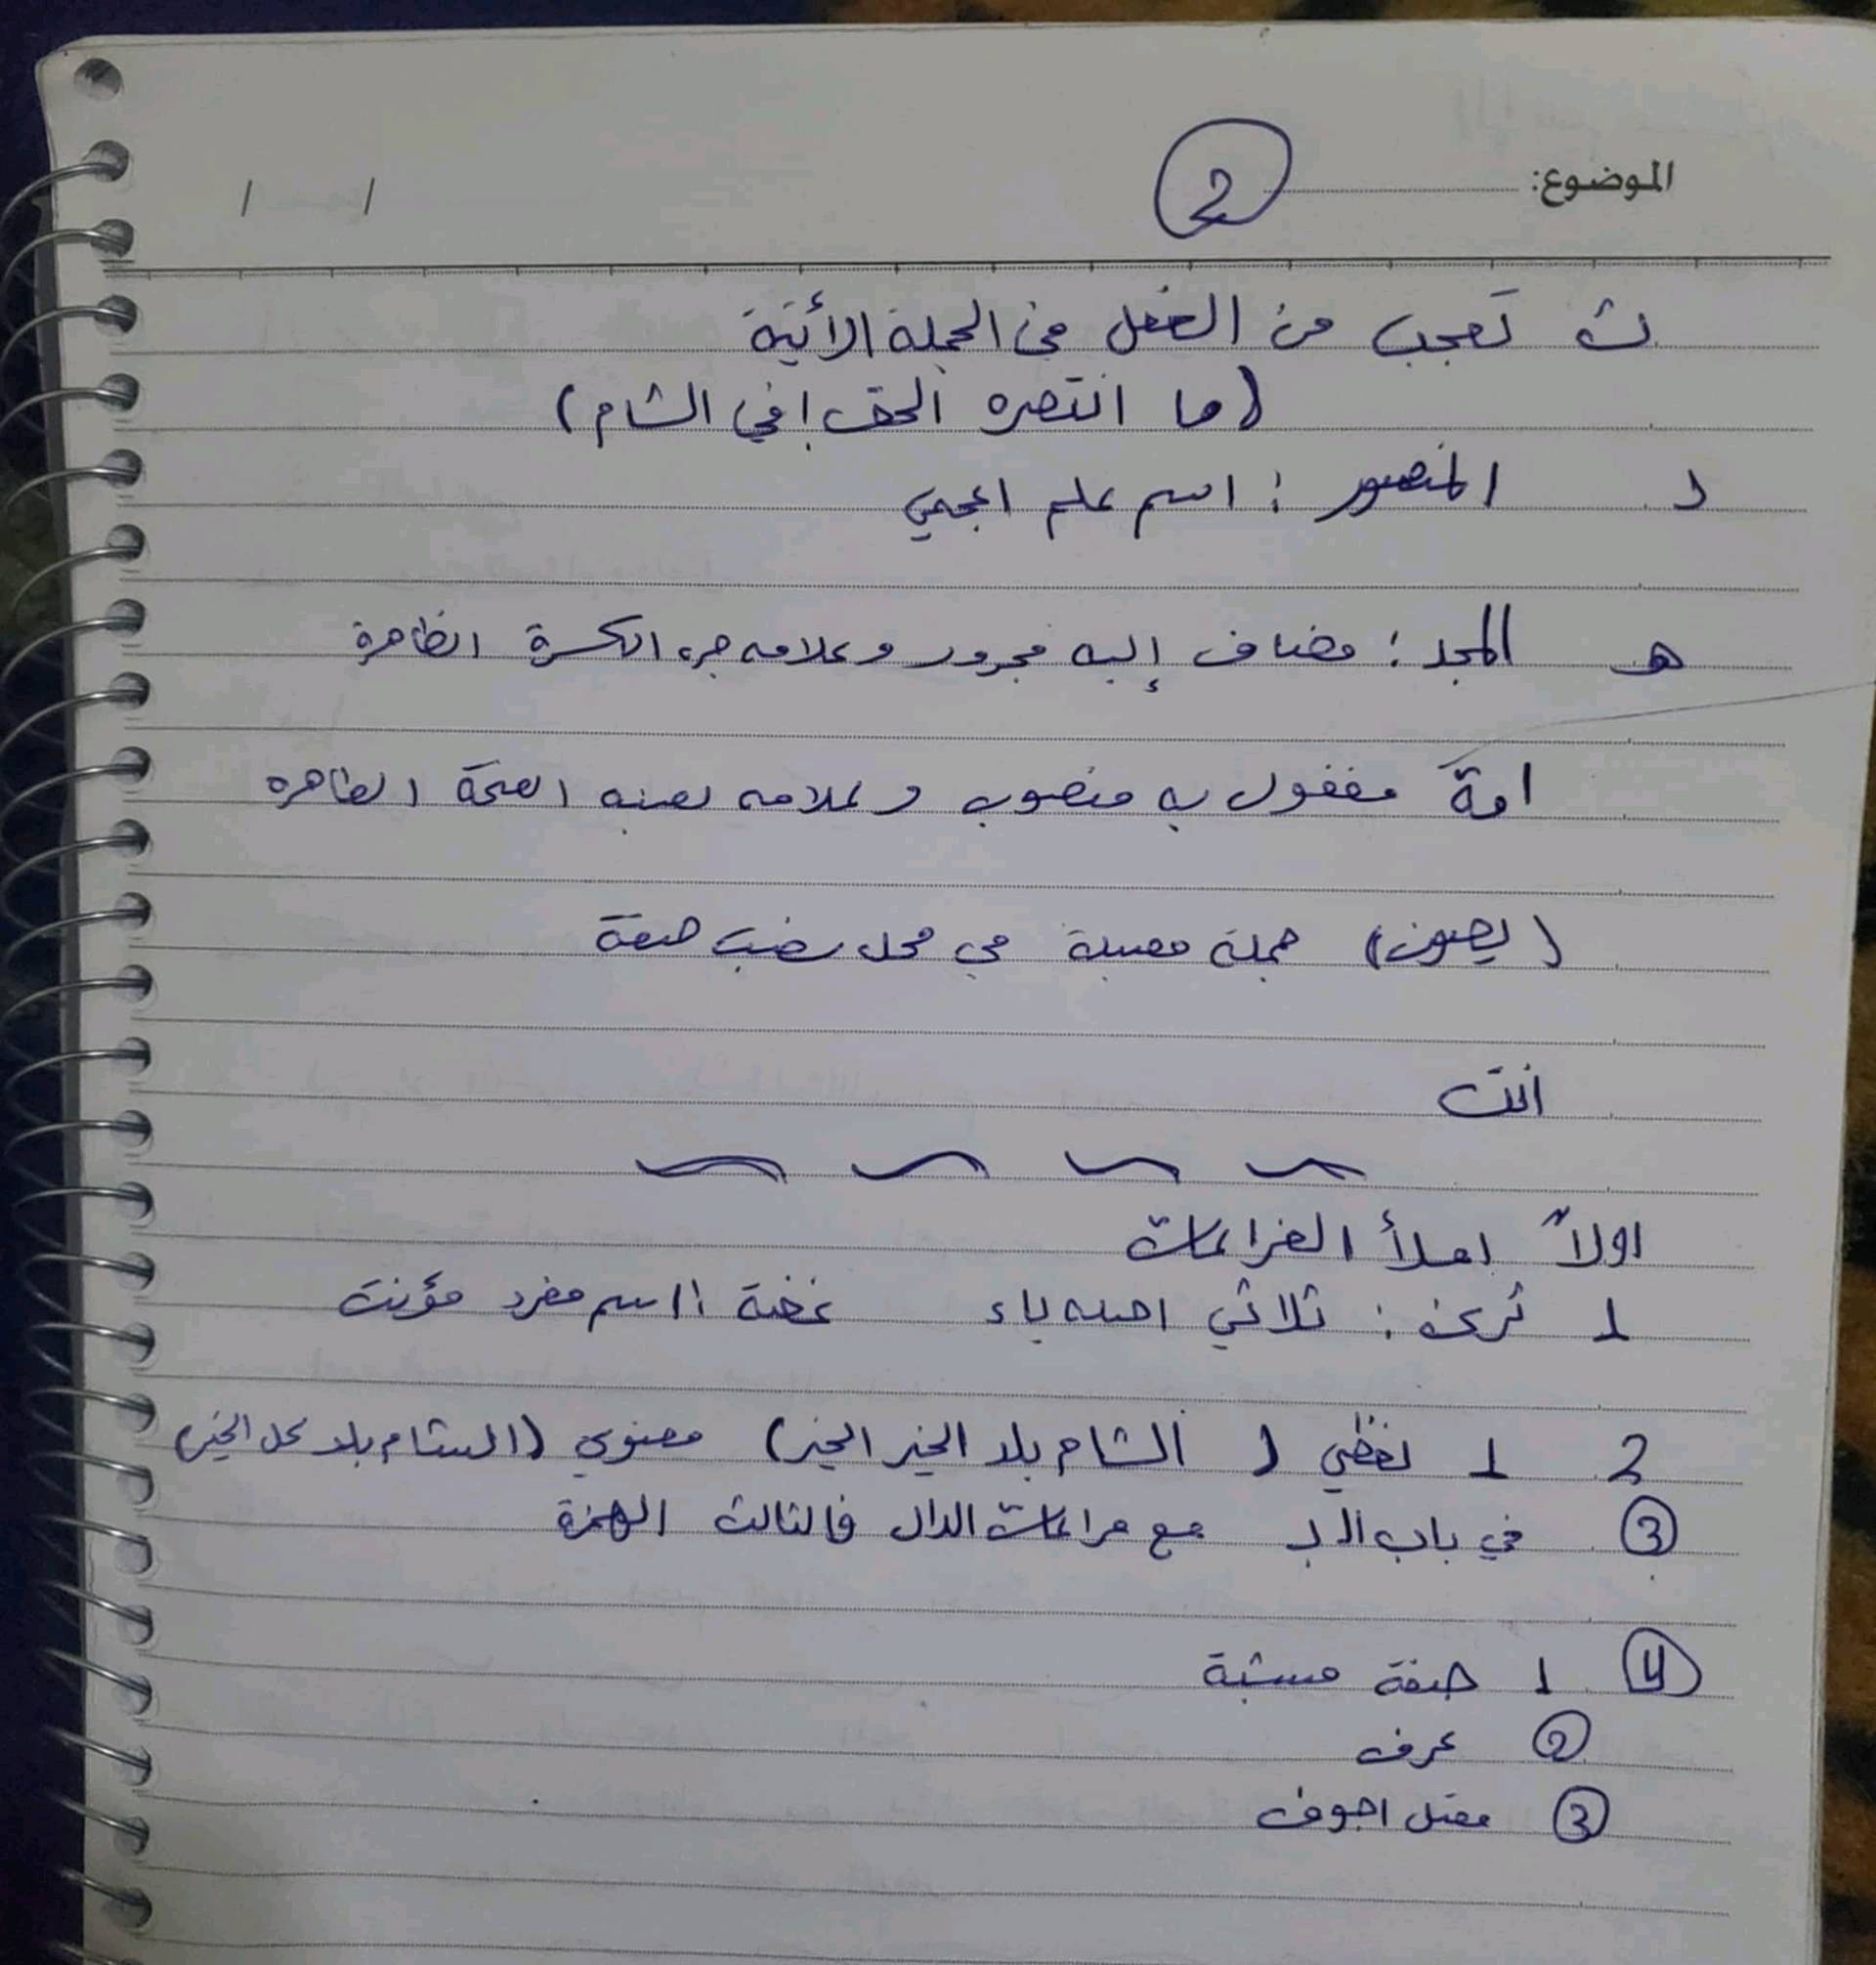 الموضوع: 2 / /
ث تَعجب من الفعل في الجملة الأتية
(ما انتصره الحق في الشام)
د المنصور : اسم علم اعجمي
هـ المجد : مضاف إليه مجرور وعلامه جره الكسرة الظاهرة
امةً مفعول به منصوب وعلامه نصبه الفتحة الظاهره
(يصون) جملة فعلية في محل نصب صفة
انت
اولاً املأ الفراغات
1 ثرى : ثلاثي اصله ياء غضة : اسم مفرد مؤنث
2 1 لفظي (الشام بلد الخير الخير) معنوي (الشام بلد كل الخير)
3 في باب مع مراعات الدال فالثالث الهمزة
4 1 صفة مشبة
2 عرف
3 معتل اجوف